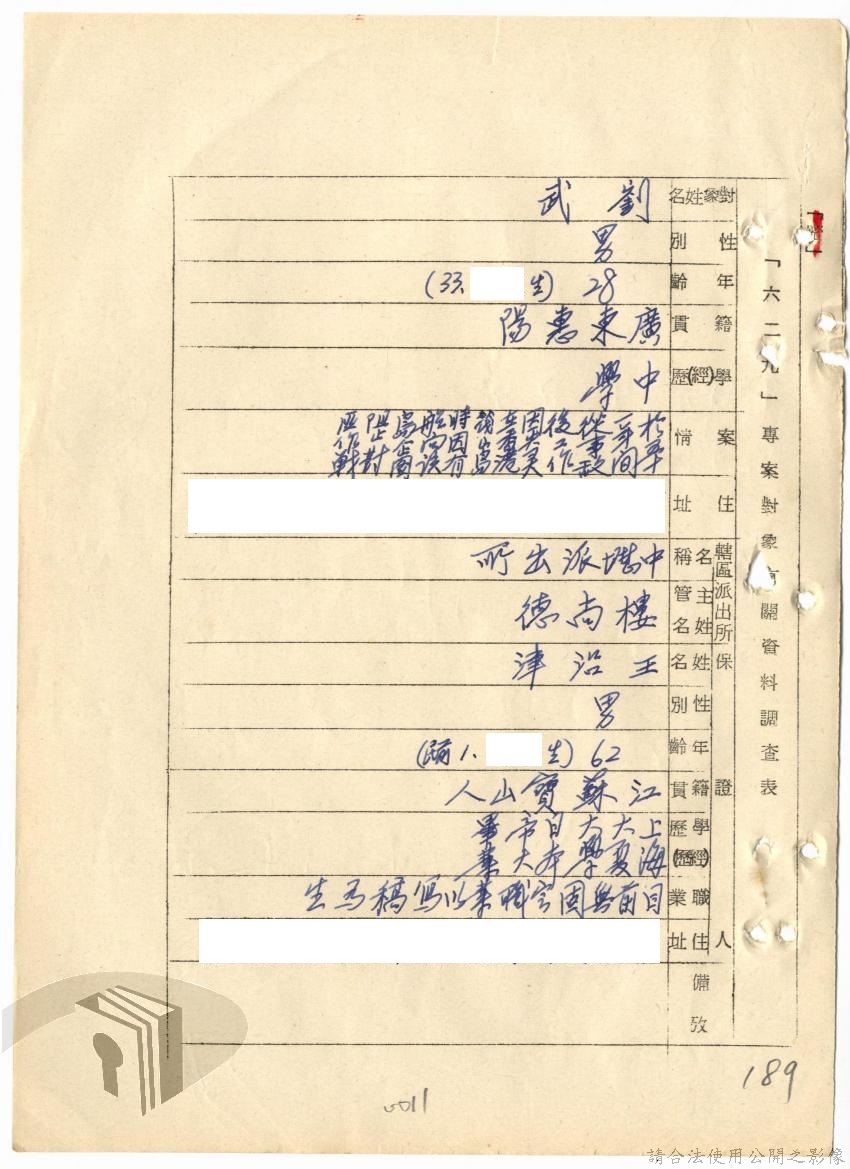 「六二九」專案對象有關資料調查表
對象姓名 劉武
性別 男
年齡 28 (33. 生)
籍貫 廣東惠陽
學(經)歷 中學
案情
住址
轄區派出所
名稱 派出所
主管姓名 樓尚德
保證人
姓名 王沿津
性別 男
年齡 62 (前1. 生)
籍貫 江蘇寶山人
學歷(經歷) 上海大夏大學日本帝大畢業
職業 目前無固定職業以寫稿為生
住址
備攷
189
0011
請合法使用公開之影像